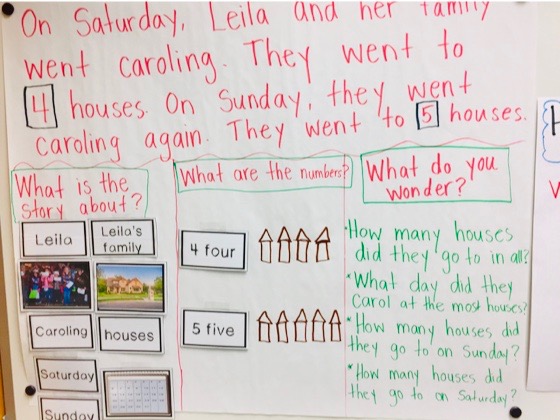 On Saturday, Leila and her family
went caroling. They went to
4 houses. On Sunday, they went
caroling again. They went to 5 houses.
What is the
story about?
Leila
Leila's
family
Caroling
houses
Saturday
Sunday
What are the numbers?
4 four
5 five
What do you
wonder?
How many houses
did they go to in all?
*What day did they
Carol at the most houses?
*How many houses did
they go to on Sunday?
*How many houses did
they go to on Saturday?